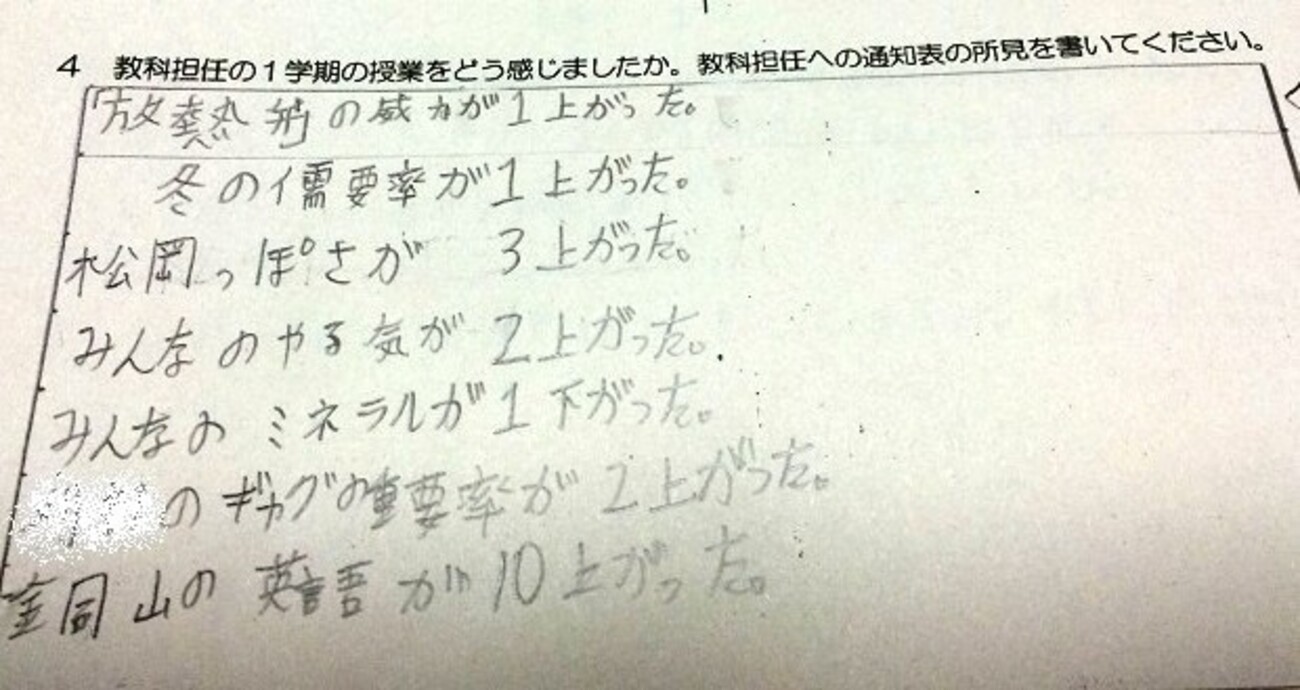 4 教科担任の1学期の授業をどう感じましたか。教科担任への通知表の所見を書いてください。
放熱弾の威力が1上がった。
冬の儒要率が1上がった。
松岡っぽさが 3上がった。
みんなのやる気が2上がった。
みんなのミネラルが1下がった。
のギャグの重要率が2上がった。
金同山の英語が10上がった。